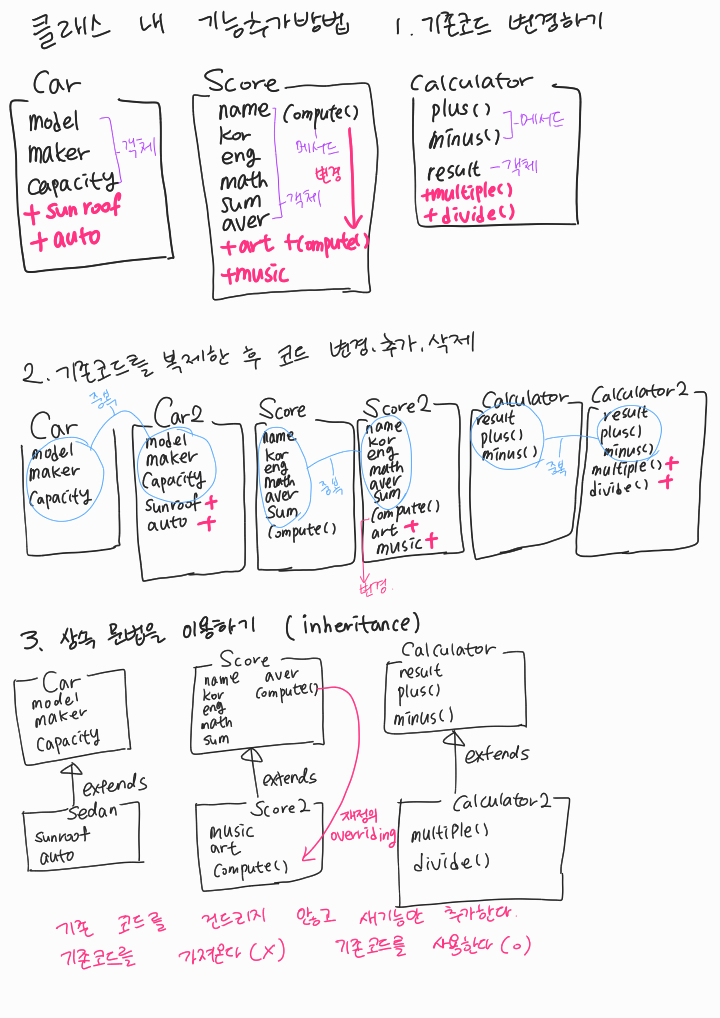 클래스 내 기능추가방법 1. 기존코드 변경하기
Car
model
maker
capacity
객체
+ sunroof
+ auto
Score
name
kor
eng
math
sum
aver
객체
compute()
메서드
변경
+art +compute()
+music
Calculator
plus()
minus()
메서드
result 객체
+multiple()
+ divide()
2. 기존코드를 복제한 후 코드 변경.추가.삭제
중복
Car
model
maker
capacity
Car2
model
maker
capacity
sunroof +
auto +
Score
name
kor
eng
math
aver
sum
compute()
중복
Score2
name
kor
eng
math
aver
sum
compute()
art +
music +
변경.
Calculator
result
plus()
minus()
중복
Calculator2
result
plus()
minus()
multiple() +
divide() +
3. 상속 문법을 이용하기 (inheritance)
Car
model
maker
capacity
extends
Sedan
sunroof
auto
Score
name aver
kor compute()
eng
math
sum
extends
Score2
music
art
compute()
재정의
overriding
Calculator
result
plus()
minus()
extends
Calculator2
multiple()
divide()
기존 코드를 건드리지 않고 새기능만 추가한다.
기존코드를 가져온다(X) 기존코드를 사용한다(O)